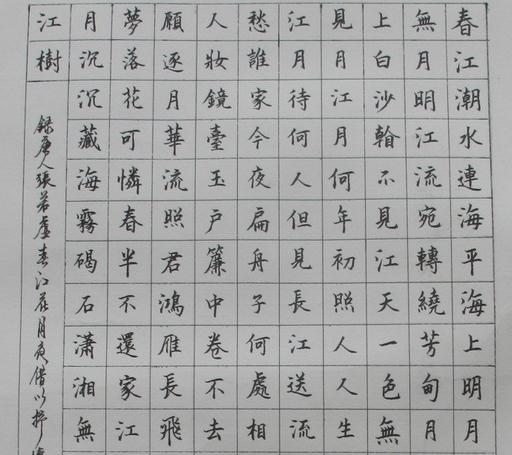 春江潮水連海平海上明月
無月明江流宛轉繞芳甸月
上白沙翰不見江天一色無
見月江月何年初照人人生
江月待何人但見長江送流
愁誰家今夜扁舟子何處相
人妝鏡臺玉戶簾中卷不去
願逐月華流照君鴻雁長飛
夢落花可憐春半不還家江
月沉沉藏海霧碣石瀟湘無
江樹
録唐人張若虛春江花月夜借以抒